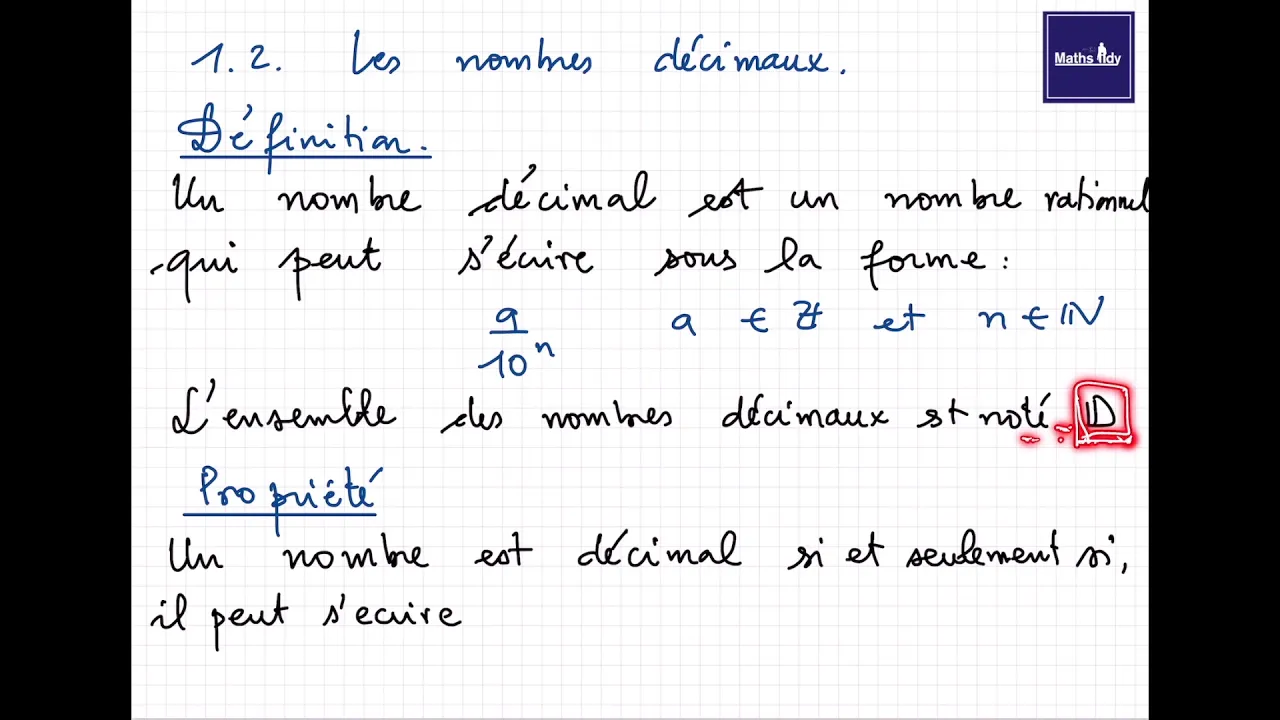 1.2. Les nombres décimaux.
Maths Idy
Définition.
Un nombre décimal est un nombre rationnel
qui peut s'écrire sous la forme :
a/10^n a ∈ ℤ et n ∈ ℕ
L'ensemble des nombres décimaux st noté 𝔻
Propriété
Un nombre est décimal si et seulement si,
il peut s'ecrire